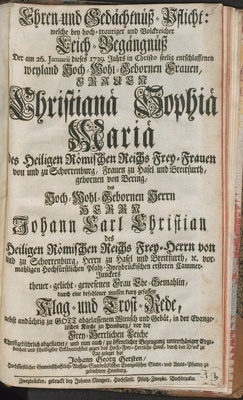 Ehren- und Gedächtnüß-Pflicht:
welche bey hoch-trauriger und Volckreicher
Leich-Begängnüß
Der am 26. Januarii dieses 1739. Jahrs in Christo seelig entschlaffenen
weyland Hoch-Wohl-Gebornen Frauen,
FRAUEN
Christianä Sophiä
Mariä
des Heiligen Römischen Reichs Frey-Frauen
von und zu Schorrenburg, Frauen zu Hasel und Breitfurth,
gebornen von Bering,
des
Hoch-Wohl-Gebornen Herrn
HERRN
Johann Carl Christian
des
Heiligen Römischen Reichs Frey-Herrn von
und zu Schorrenburg, Herrn zu Hasel und Breitfurth, ꝛc. vor-
mahligen Hochfürstlichen Pfaltz-Zweybrückischen ersteren Cammer-
Junckers
theuer-geliebt-gewesenen Frau Ehe-Gemahlin,
durch eine befohlener massen kurz gefaßte
Klag- und Trost-Rede,
nebst andächtig zu GOTT abgelassenem Wunsch und Gebät, in der Evange-
lischen Kirche zu Homburg, vor der
Frey-Herrlichen Leiche
Tag gelegt
Johann Georg Gersten,
Zweybrücken, gedruckt bey Johann